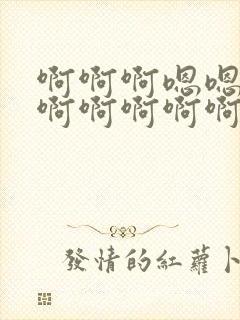 啊啊啊嗯嗯
啊啊啊啊啊
發情的紅蘿卜